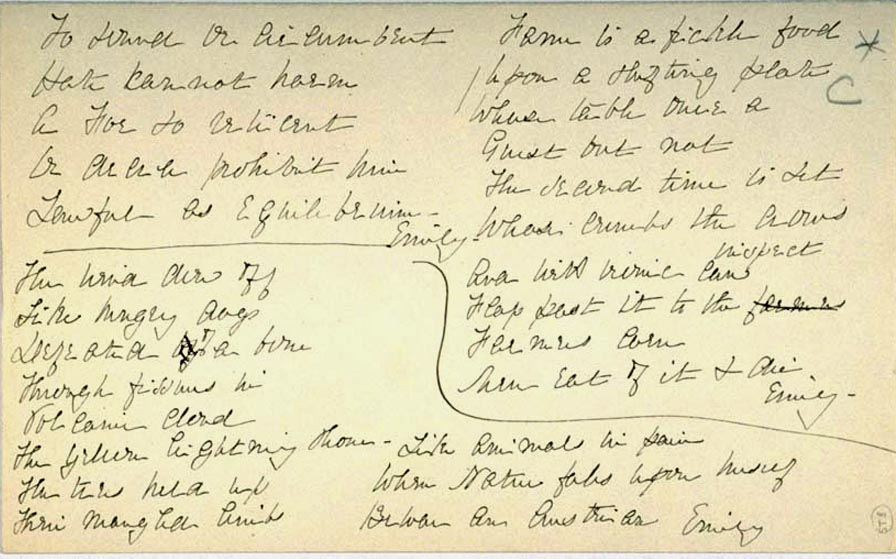 To or circumvent
Hate cannot harm
A Foe so reticent
Or decree prohibit him
Lawful as Equilibrium -
Emily -
The wind drew off
Like hungry dogs
Defeated of a bone
Through fissures in
Volcanic cloud
The yellow lightning shone -
The trees held up
Their mangled limbs
Fame is a fickle food
Upon a shifting plate
Whose table once a
Guest but not
The second time is set
Whose crumbs the crows
inspect
And with ironic caw
Flap past it to the farmers
Farmers corn
Men eat of it & die
Emily -
Like animals in pain
When Nature falls upon herself
Beware an Austrian
Emily
C